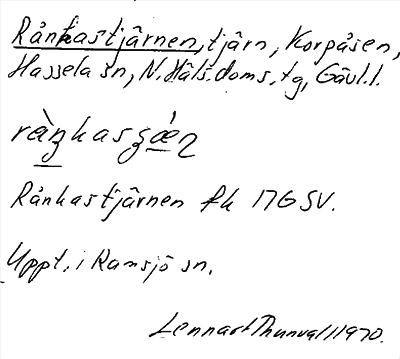 Rånkastjärnen, tjärn, Korpåsen,
Hassela sn, N. Häls. doms. tg, Gävl. l.
Rånkastjärnen fk 17G SV.
Uppt. i Ramsjö sn.
Lennart Thunvall 1970.